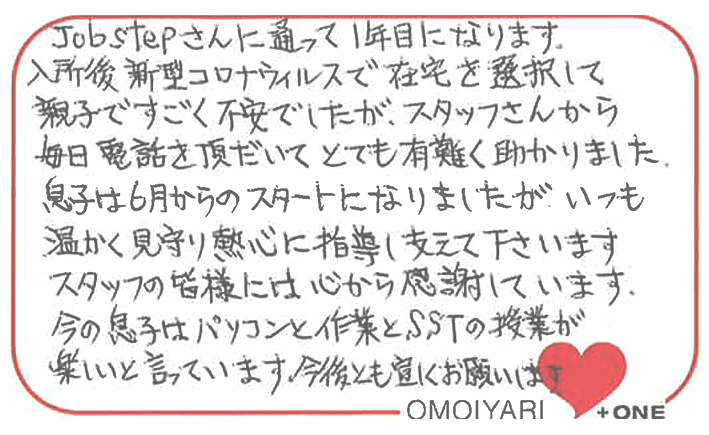 Jobstepさんに通って1年目になります。
入所後新型コロナウィルスで在宅を選択して
親子ですごく不安でしたが、スタッフさんから
毎日電話を頂だいてとても有難く助かりました。
息子は6月からのスタートになりましたが、いつも
温かく見守り熱心に指導し支えて下さいます
スタッフの皆様には心から感謝しています。
今の息子はパソコンと作業とSSTの授業が
楽しいと言っています。今後とも宜くお願いします
OMOIYARI +ONE